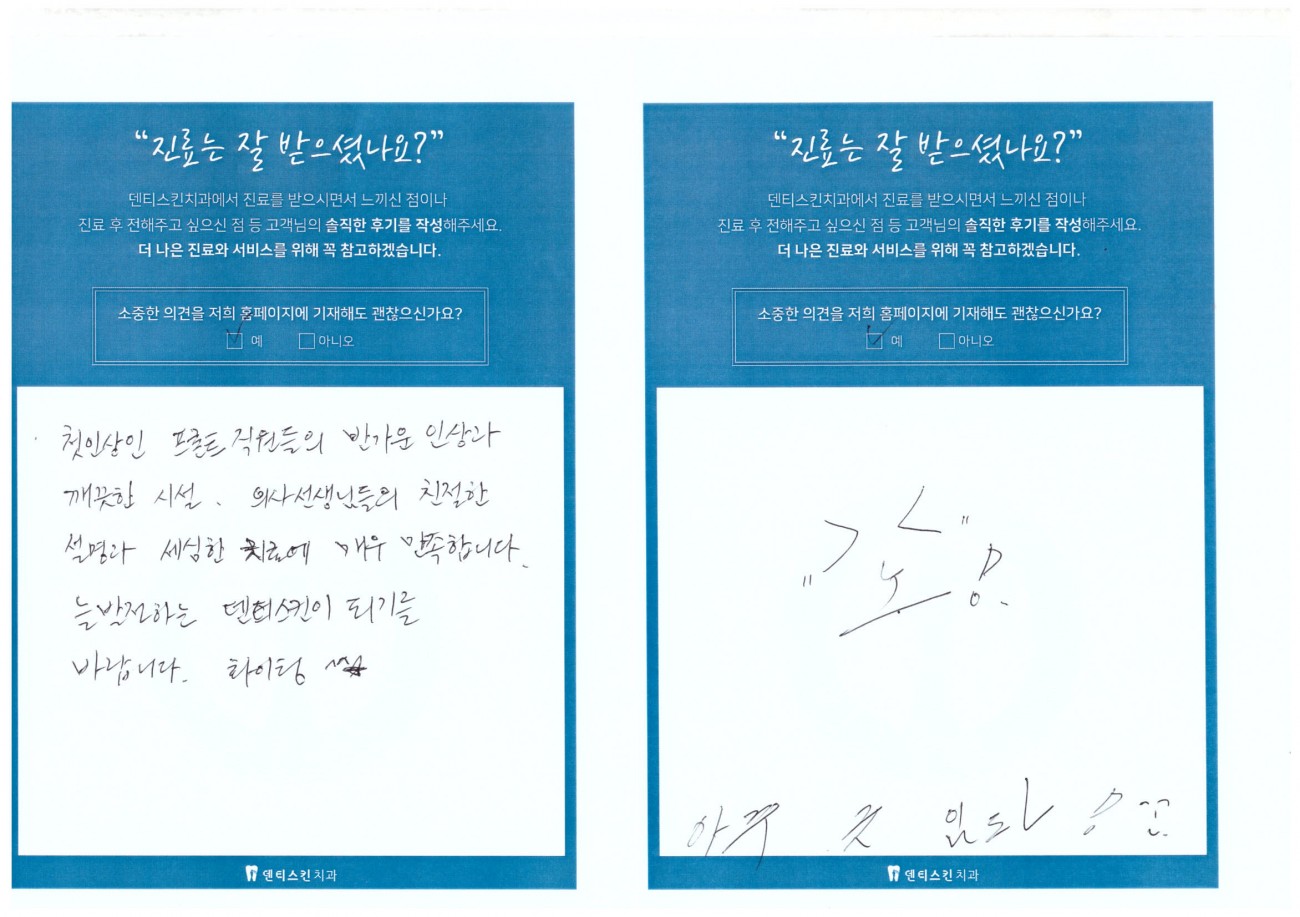 “진료는 잘 받으셨나요?”
덴티스킨치과에서 진료를 받으시면서 느끼신 점이나
진료 후 전해주고 싶으신 점 등 고객님의 솔직한 후기를 작성해주세요.
더 나은 진료와 서비스를 위해 꼭 참고하겠습니다.
소중한 의견을 저희 홈페이지에 기재해도 괜찮으신가요?
예 아니오
첫인상인 프론트 직원들의 반가운 인상과
깨끗한 시설. 의사선생님들의 친절한
설명과 세심한 치료에 매우 만족합니다.
늘 발전하는 덴티스킨이 되기를
바랍니다. 화이팅
덴티스킨치과
“진료는 잘 받으셨나요?”
덴티스킨치과에서 진료를 받으시면서 느끼신 점이나
진료 후 전해주고 싶으신 점 등 고객님의 솔직한 후기를 작성해주세요.
더 나은 진료와 서비스를 위해 꼭 참고하겠습니다.
소중한 의견을 저희 홈페이지에 기재해도 괜찮으신가요?
예 아니오
덴티스킨치과